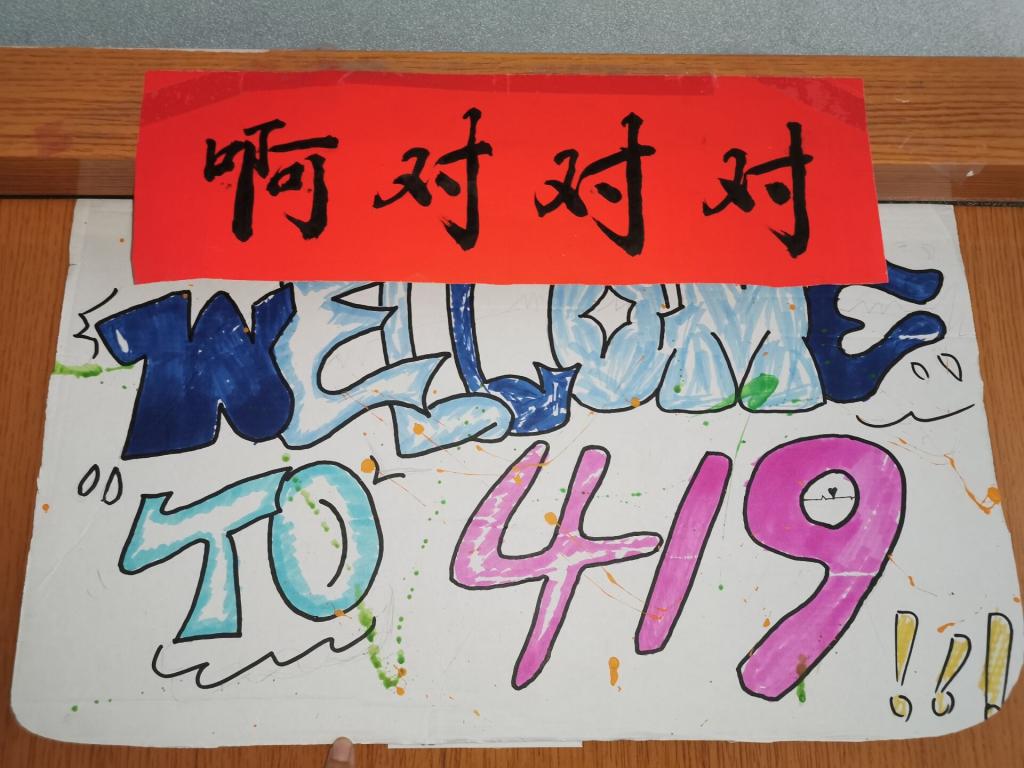 啊对对对
WELCOME
TO 419
!!!